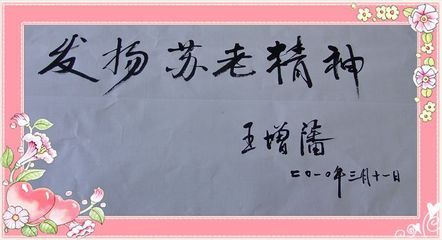 发扬苏老精神
王增藩
二〇一〇年三月十一日